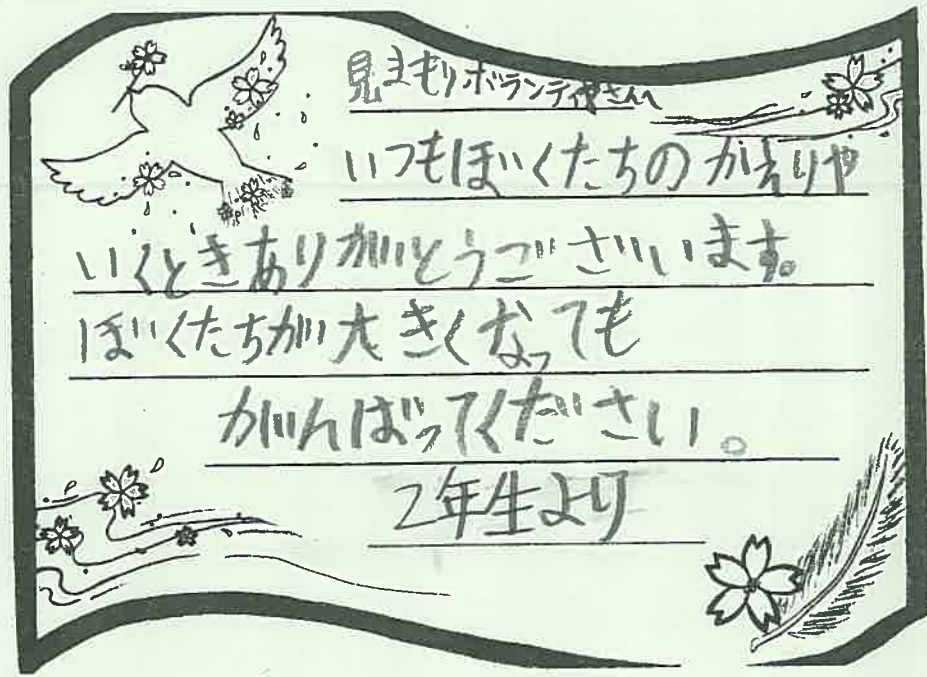 見まもりボランティアさんへ
いつもぼくたちのかえりや
いくときありがとうございます。
ぼくたちが大きくなっても
がんばってください。
2年生より